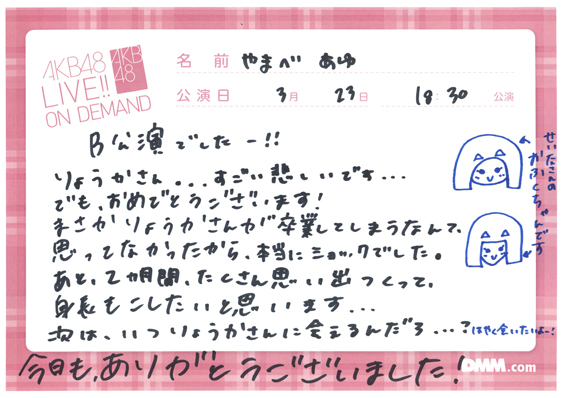 AKB48
LIVE!!
ON DEMAND
AKB
48
名前 やまべ あゆ
公演日 3月 23日 18:30 公演
B公演でしたー!!
りょうかさん...すごい悲しいです...
でも、おめでとうございます!
まさかりょうかさんが卒業してしまうなんて、
思ってなかったから、本当にショックでした。
あと、2か月間、たくさん思い出つくって、
身長もこしたいと思います...
次は、いつりょうかさんに会えるんだろ...?はやく会いたいよー!
今日も、ありがとうございました!
せいたさんの
おふくちゃんです
DMM.com